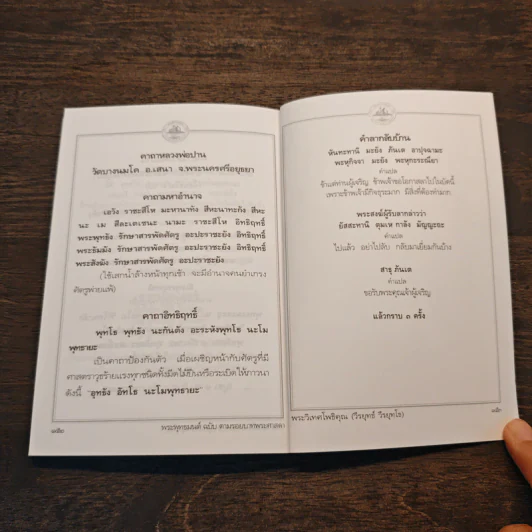 คาถาหลวงพ่อปาน
วัดบางนมโค อ.เสนา จ.พระนครศรีอยุธยา
คาถามหาอำนาจ
เอวัง ราชะสีโห มะหานาทัง สีหะนาทะกัง สีหะ
นะ เม สีละเตเชนะ นามะ ราชะสีโห อิทธิฤทธิ์
พระพุทธัง รักษาสารพัดศัตรู อะปะราชะยัง อิทธิฤทธิ์
พระธัมมัง รักษาสารพัดศัตรู อะปะราชะยัง อิทธิฤทธิ์
พระสังฆัง รักษาสารพัดศัตรู อะปะราชะยัง
(ใช้เสกน้ำล้างหน้าทุกเช้า จะมีอำนาจคนยำเกรง
ศัตรูพ่ายแพ้)
คาถาอิทธิฤทธิ์
พุทโธ พุทธัง นะกันตัง อะระหังพุทโธ นะโม
พุทธายะ
เป็นคาถาป้องกันตัว เมื่อเผชิญหน้ากับศัตรูที่มี
ศาสตราวุธร้ายแรงทุกชนิดทั้งมีดไม้ปืนหรือระเบิดให้ภาวนา
ดังนี้ อุทธัง อัทโธ นะโมพุทธายะ
พระพุทธมนต์ ฉบับ
คำลากลับบ้าน
หันทะทานิ มะยัง ภันเต อาปุจฉามะ
พะหุกิจจา มะยัง พะหุกะระณียา
คำแปล
ข้าแต่ท่านผู้เจริญ ข้าพเจ้าขอโอกาสลาไปในบัดนี้
เพราะข้าพเจ้ามีกิจธุระมาก มีสิ่งที่ต้องทำมาก
พระสงฆ์ผู้รับลากล่าวว่า
ยัสสะทานิ ตุมเห กาลัง มัญญะถะ
คำแปล
ไปแล้ว อย่าไปลับ กลับมาเยี่ยมกันบ้าง
สาธุ ภันเต
คำแปล
ขอรับพระคุณเจ้าผู้เจริญ
แล้วกราบ ๓ ครั้ง
พระวิเทศโพธิคุณ (วีรยุทธ์ วีรยุทโธ)